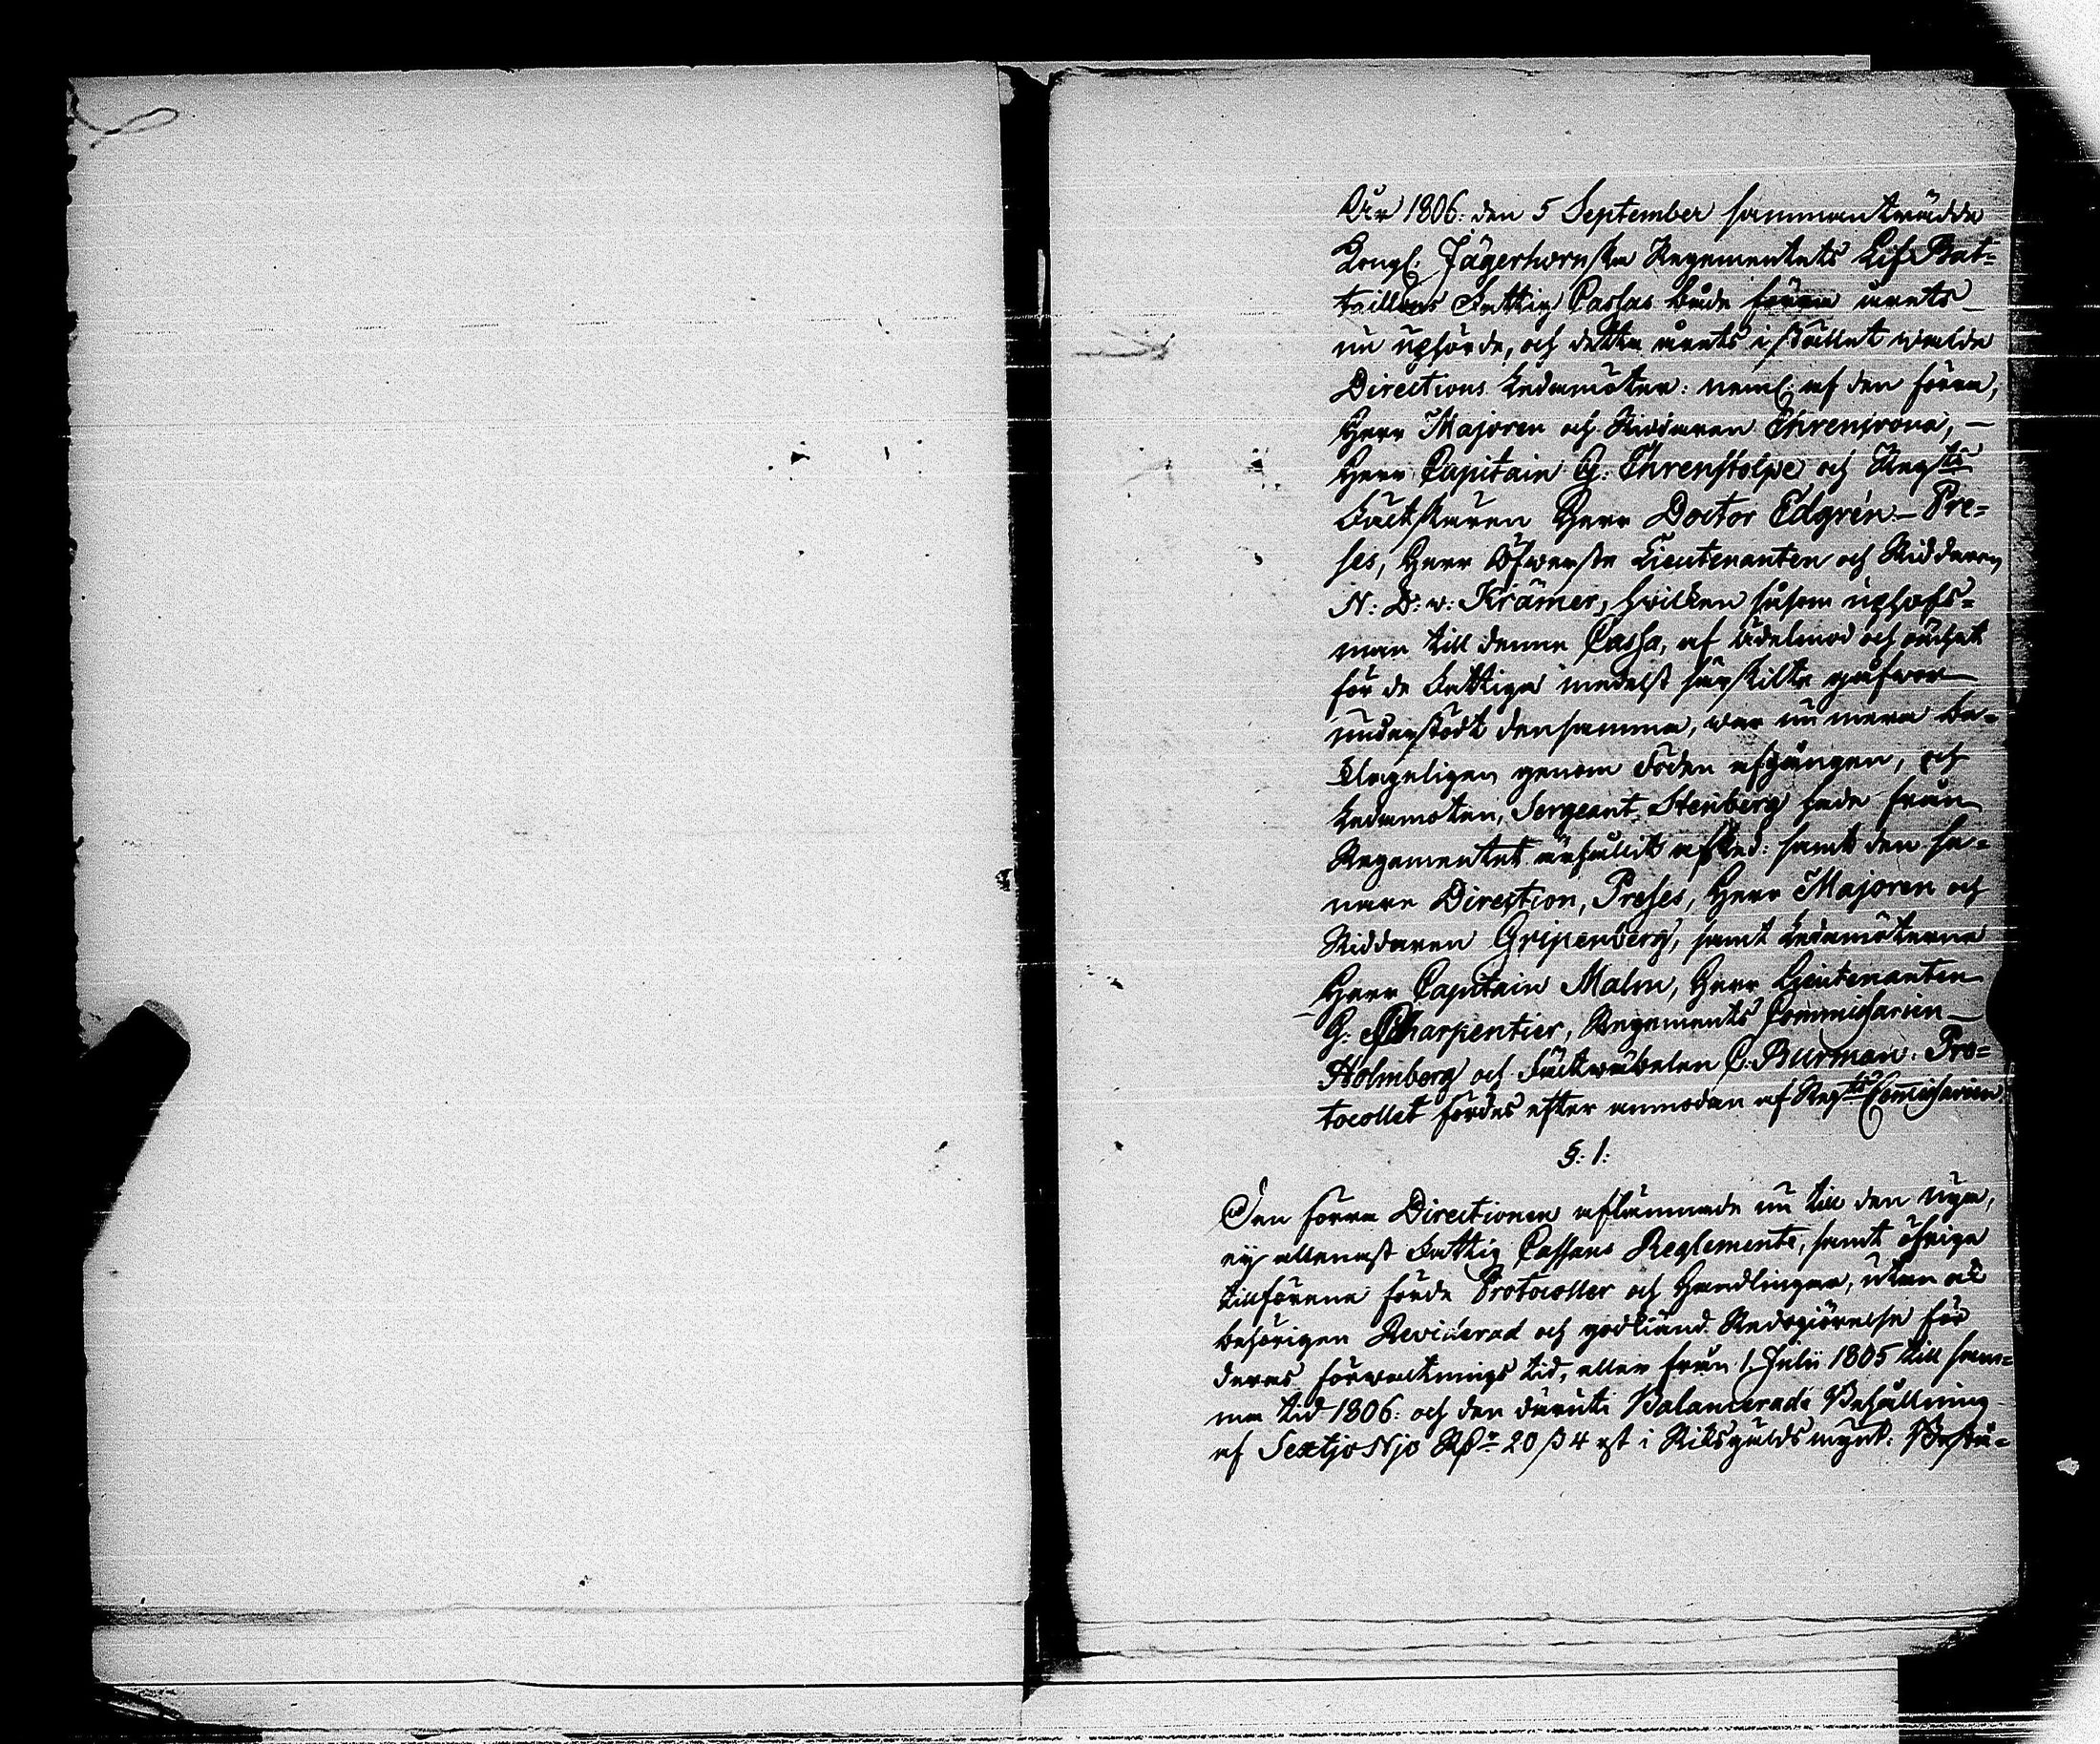 År 1806: den 5 September sammanträdde
Kongl: Jägerhornska Regementets Lif Bat-
taillons Fattig Cassas både förra årets
nu uphörde, och detta årets i stället walde
Directions Ledamöter: neml: af den förra,
Herr Majoren och Riddaren Ehrenroos, —
Herr Capitain G: Ehrenstolpe och Regts
Fältskären Herr Doctor Edgrén — Pre-
ses, Herr Öfwerste Lieutenanten och Riddaren
N: D: v: Krämer, hwilken såsom uphofs-
man till denna Cassa, af ädelmod och
för de Fattiga medelst särskilte gåfwor
understödt densamma, war nu mera be-
klageligen genom Döden afgången, och
Ledamoten, Sergeant Stenberg hade från
Regementet erhållit afsked: samt den se-
nare Direction, Preses, Herr Majoren och
Riddaren Gripenberg, samt Ledamöterne
Herr Capitain Malm, Herr Lieutenanten
G: Charpentier, Regements Commissarien
Holmberg och Fältwäbelen C: Burman. Pro-
tocollet fördes efter anmodan af Regts Comissarien
§: 1:
Den förra Directionen aflämnade nu till den nya,
ej allenast Fattig Cassans Reglemente, samt öfrige
tillförene förde Protocoller och Handlingar, utan ock
behörigen Reviderad och godkiänd Redogiörelse för
deras förwaltnings tid, eller från 1 Julii 1805 till sam-
ma tid 1806: och den däruti Balancerade Behållning
af Sextjo Njo Rdr 20 s 4 rst i Riksgälds mynt: Bestå-